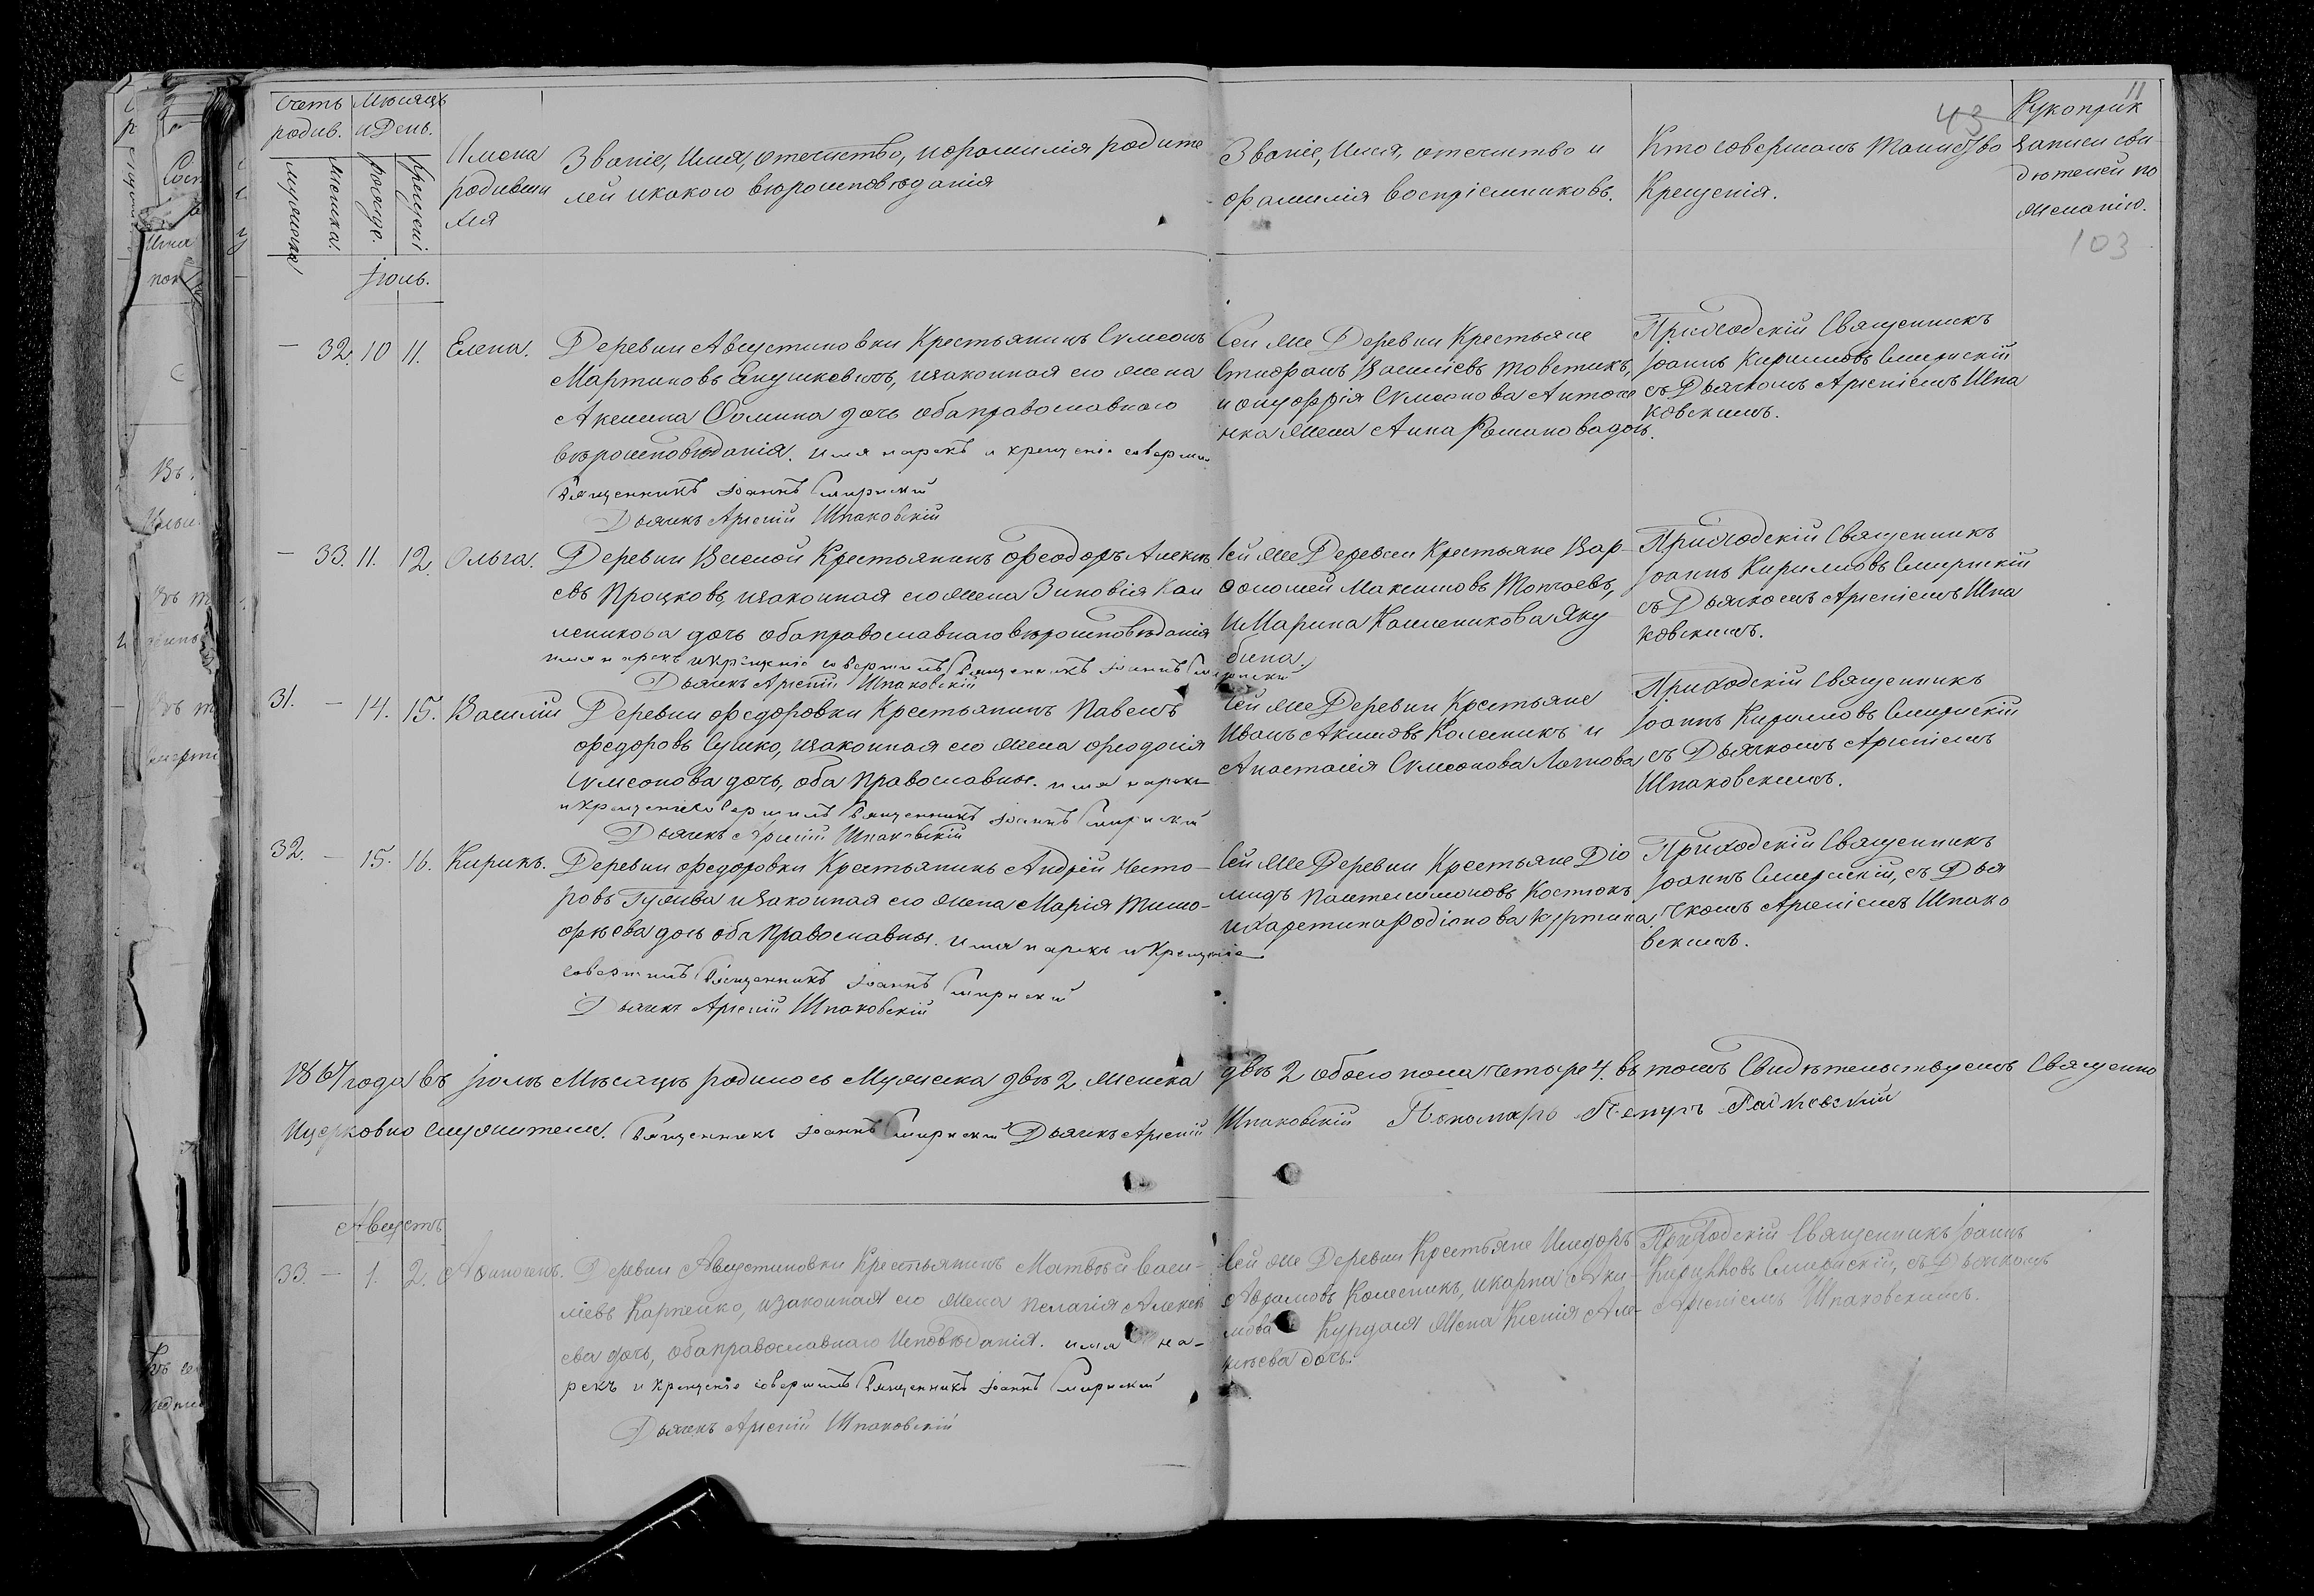 Счетъ родив.
Мѣсяцъ и День.
мужеска
женска.
рожде.
крещені
Имена
родивши
мся
Званіе, Имя, отечество, и фамилія родите
лей и какого вѣроисповѣданія
Званіе, Имя, отечество и
фамилія воспріемниковъ.
Кто совершалъ Таинство
Крещенія.
Рукоприк
записи сви
дѣтелей по
желанію.
11
43
103
Іюль.
— 32. 10 11. Елена.
Деревни Августиновки Крестьянинъ Сѵмеонъ
Мартиновъ Янушкевичъ, и законная его жена
Акелина Фомина дочь оба православнаго
вѣроисповѣданія. имя нарекъ и крещеніе соверши
Священникъ Іоаннъ Смирнскій
Дьячекъ Арсеній Шпаковскій
Сей же Деревни Крестьяне
Стефанъ Васильевъ Товстикъ,
и онуфрія Сѵмеонова Антоне
нка жена Анна Романова дочь.
Приходскій Священникъ
Іоаннъ Кирилловъ Смирнскій
съ Дьячкомъ Арсеніемъ Шпа
ковскимъ.
— 33. 11. 12. Ольга.
Деревни Вислой Крестьянинъ Феодоръ Алексѣ
евъ Процковъ, и законная его жена Зиновія Кал
леникова дочь оба православнаго вѣроисповѣданія
имя нарекъ и крещеніе совершилъ Священникъ Іоаннъ Смирнскій
Дьячекъ Арсеній Шпаковскій
Сей же Деревни Крестьяне Вар-
фоломей Максимовъ Топчаевъ,
и Марина Каленикова Яку
бина.
Приходскій Священникъ
Іоаннъ Кирилловъ Смирнскій
съ Дьячкомъ Арсеніемъ Шпа
ковскимъ.
31. — 14. 15. Василій
Деревни Федоровки Крестьянинъ Павелъ
Федоровъ Сушко, и законная его жена Феодосія
Сѵмеонова дочь, оба православные. имя нарекъ
и крещеніе совершилъ Священникъ Іоаннъ Смирнскій
Дьячекъ Арсеній Шпаковскій
Сей же Деревни Крестьяне
Иванъ Акимовъ Колесникъ и
Анастасія Сѵмеонова Логнова
Приходскій Священникъ
Іоаннъ Кирилловъ Смирнскій
съ Дьячкомъ Арсеніемъ
Шпаковскимъ.
32. — 15. 16. Кирикъ.
Деревни Федоровки Крестьянинъ Андрей Несто-
ровъ Гулива и законная его жена Марія Тимо-
фѣева дочь оба православные. имя нарекъ и крещеніе
совершилъ Священникъ Іоаннъ Смирнскій
Дьячекъ Арсеній Шпаковскій
Сей же Деревни Крестьяне Діо
мидъ Пантелимоновъ Костюкъ
и Харетина Родіонова Куртина.
Приходскій Священникъ
Іоаннъ Смирнскій, съ Дья
чкомъ Арсеніемъ Шпако
вскимъ.
1867 года въ Іюлѣ Мѣсяцѣ родилось Мужеска двѣ 2 Женска двѣ 2 обоего пола четыре 4. въ томъ Свидѣтельствуемъ Священно
Ицерковно служители. Священникъ Іоаннъ Смирнскій Дьячекъ Арсеній Шпаковскій Пономарь Петръ
Августъ
33. — 1. 2. Афиногенъ.
Деревни Августиновки Крестьянинъ Матвѣй Васи-
ліевъ Карпенко, и законная его жена Пелагія Алексѣ
ева дочь, оба православнаго Исповѣданія. имя на-
рекъ и крещеніе совершилъ Священникъ Іоаннъ Смирнскій
Дьячекъ Арсеній Шпаковскій
Сей же Деревни Крестьяне Исидоръ
Абрамовъ Колесникъ, и карпа Аки-
мова Курдася Жена Ксенія Але-
ксѣева дочь.
Приходскій Священникъ Іоаннъ
Кирилловъ Смирнскій, съ Дьячкомъ
Арсеніемъ Шпаковскимъ.